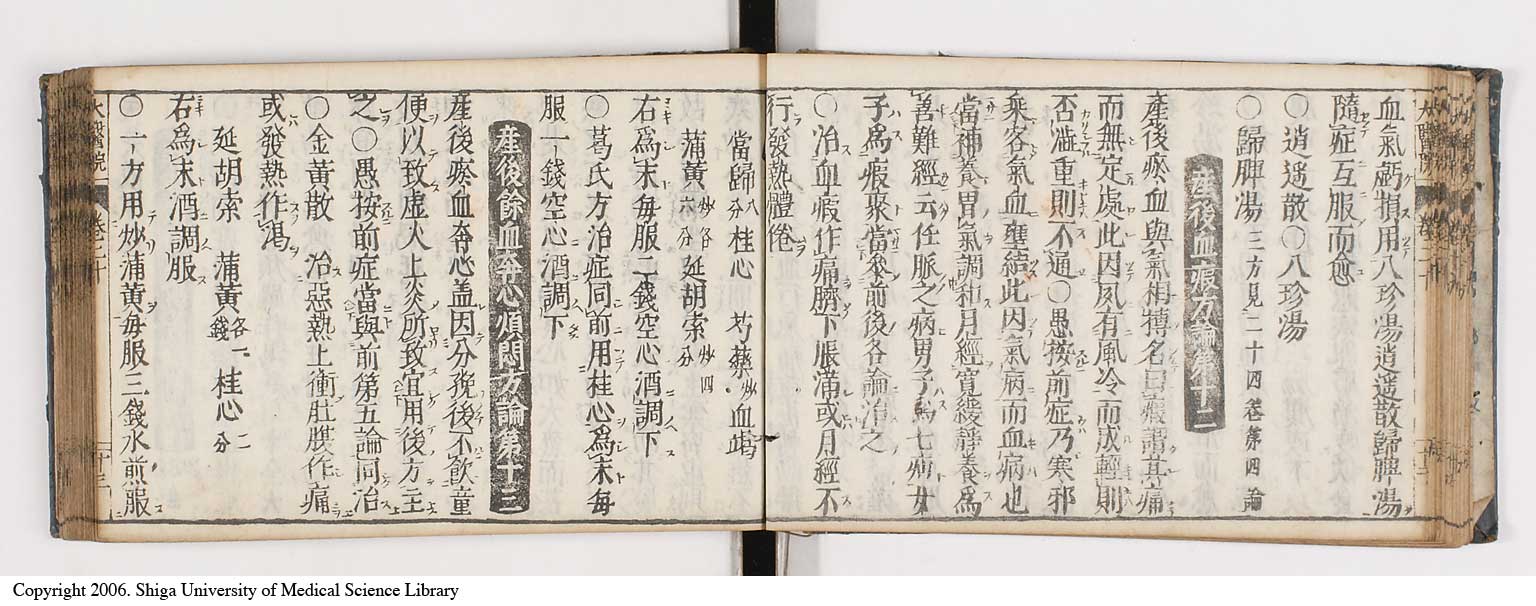 血氣虧損用八珍湯逍遥散歸脾湯
隨症互服而愈
〇逍遥散〇八珍湯
〇歸脾湯三方見二十四卷第四論
産後血瘕方論第十二
産後瘀血與氣相搏名曰瘕謂其痛
而無定處此因夙有風冷而成輕則
否澁重則不通〇愚按前症乃寒邪
乘客氣血壅結此因氣病而血病也
當神養胃氣調和月經寛緩靜養爲
善難經云任脈之病男子爲七疝女
子爲瘕聚當參前後各論治之
〇治血瘕作痛臍下脹滿或月經不
行發熱體倦
當歸八分桂心 芍藥炒血竭
蒲黄炒各六分延胡索炒四分
右爲末毎服二錢空心酒調下
〇葛氏方治症同前用桂心爲末毎
服一錢空心酒調下
産後餘血奔心煩悶方論第十三
産後瘀血奔心盖因分娩後不飲童
便以致虚火上炎所致宜用後方主
之〇愚按前症當與前第五論同治
〇金黄散 治惡熱上衝肚腹作痛
或發熱作渇
延胡索 蒲黄各一錢 桂心二分
右爲末酒調服
〇一方用炒蒲黄毎服三錢水煎服
大醫院 卷二十
Copyright 2006. Shiga University of Medical Science Library